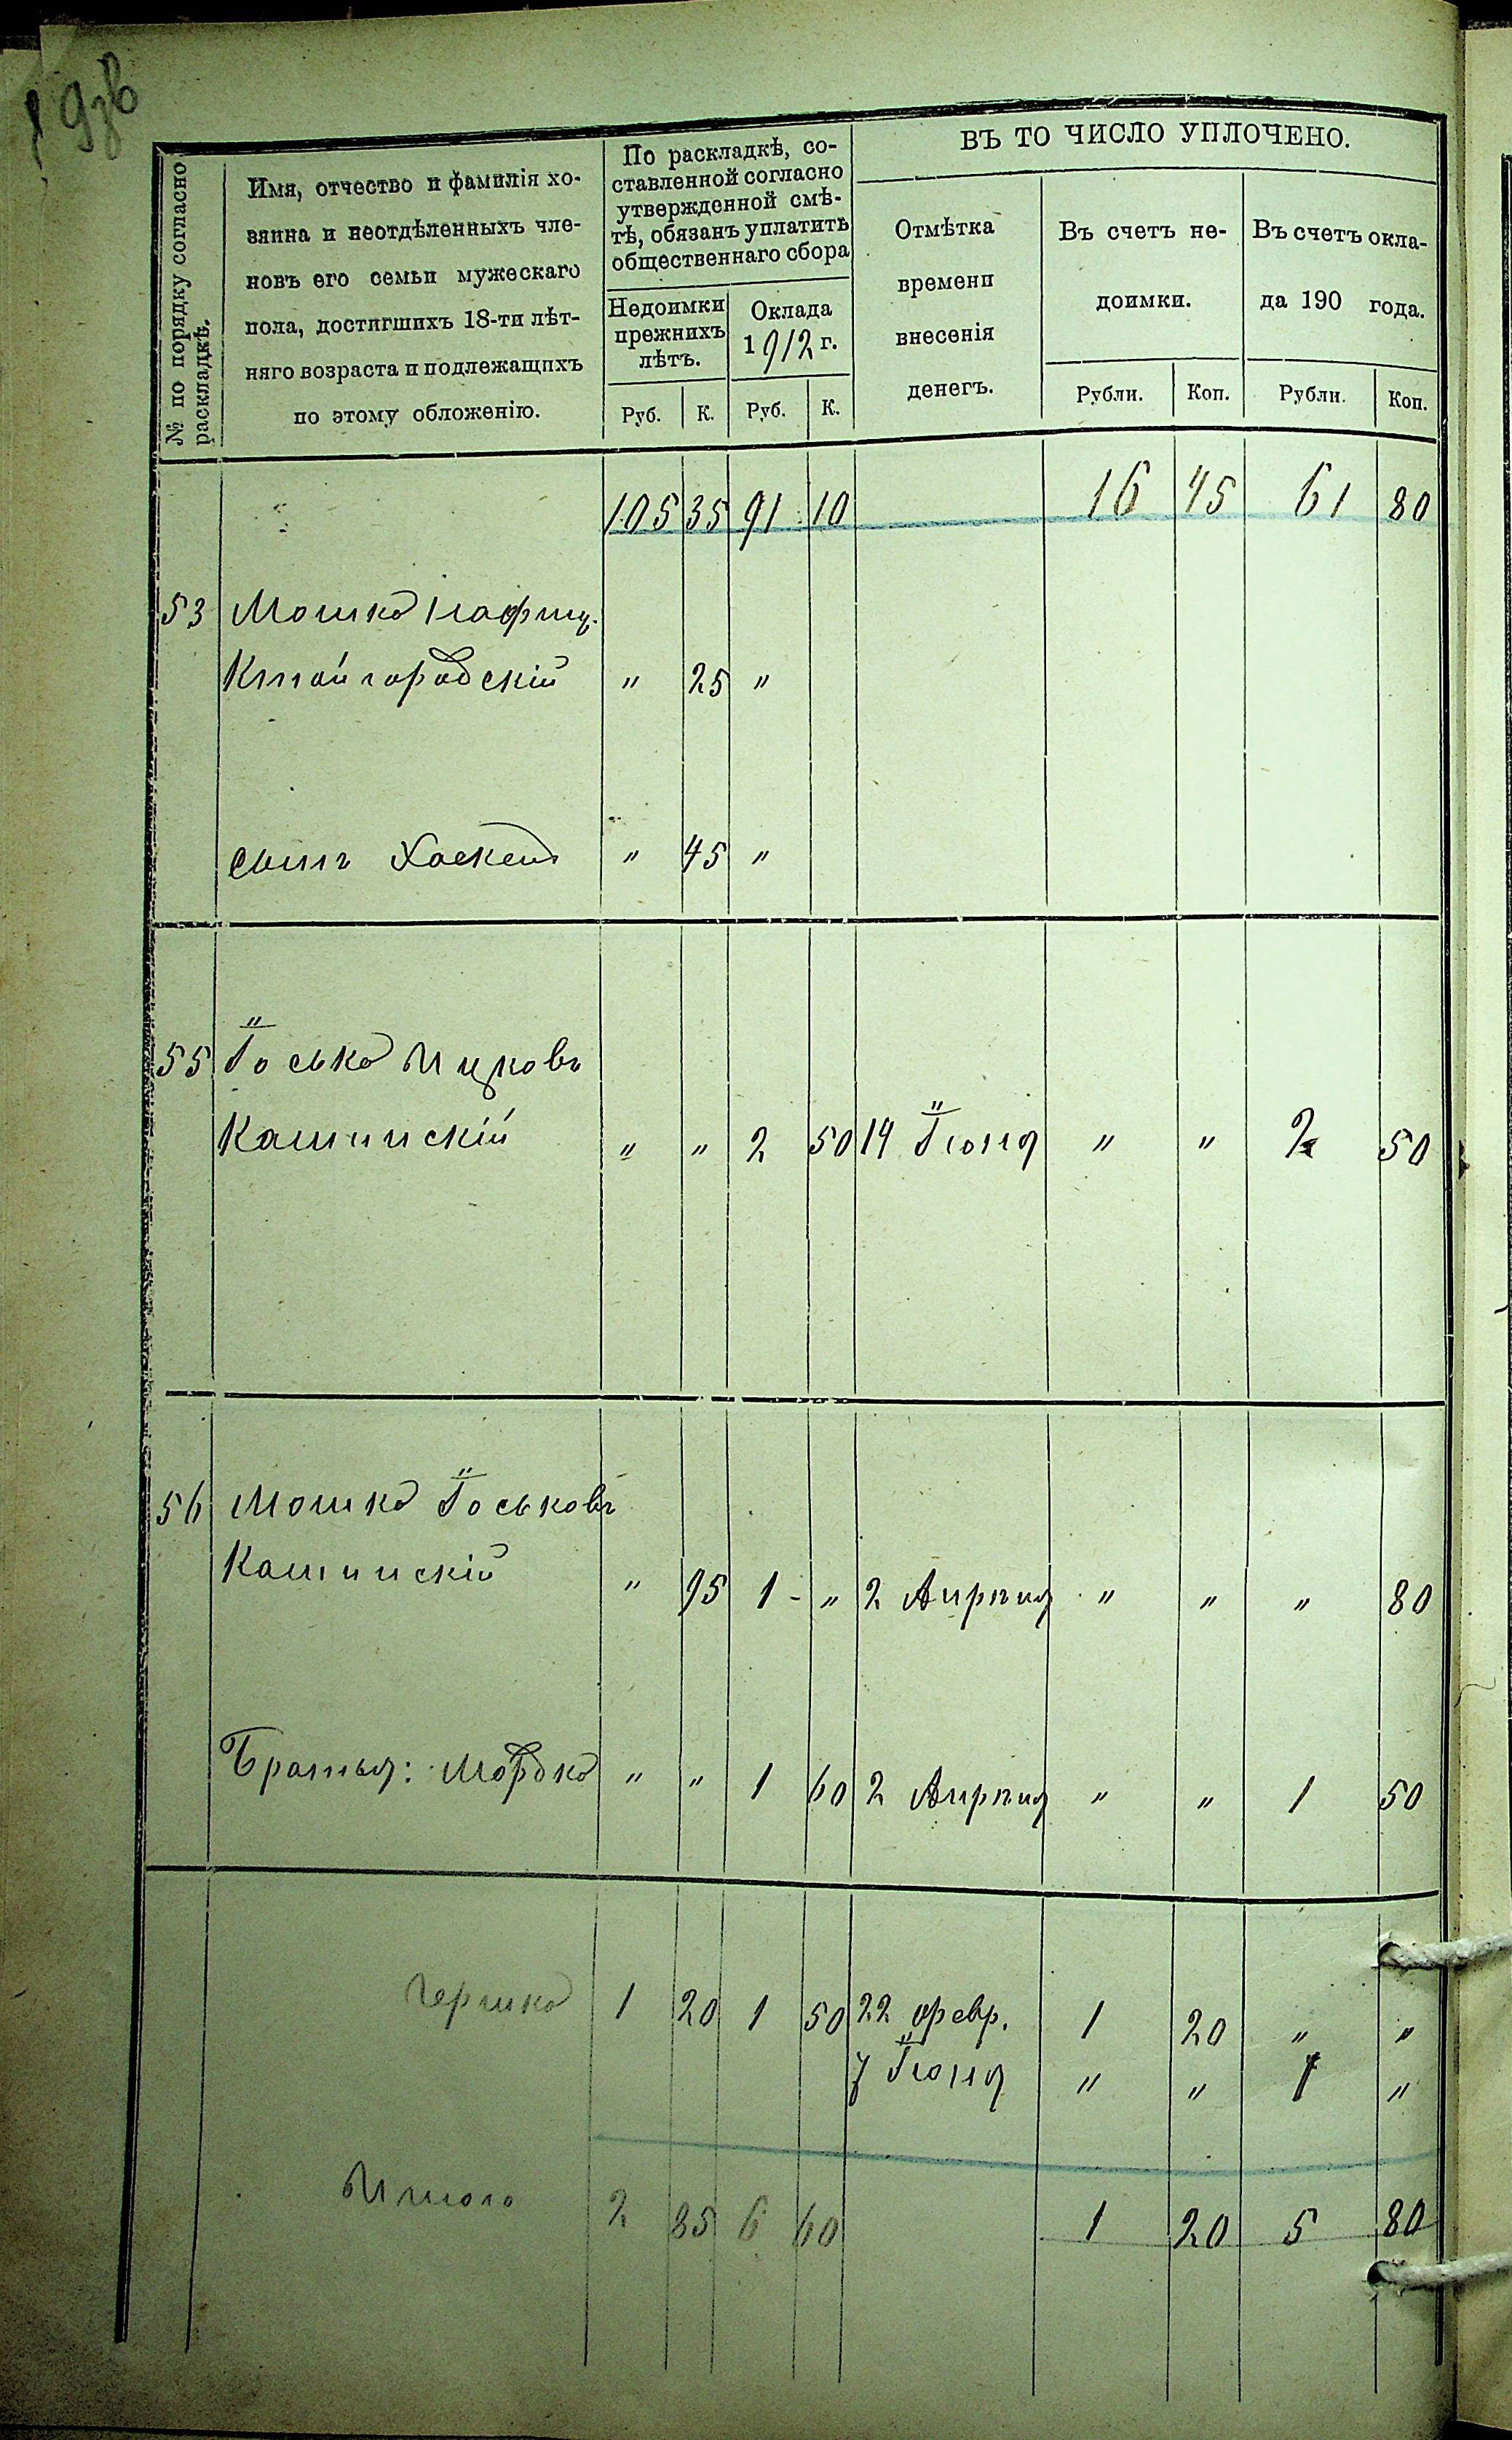 № по порядку согласно раскладкѣ.
Имя, отчество и фамилія хо-
зяина и неотдѣленныхъ чле-
новъ его семьи мужескаго
пола, достигшихъ 18-ти лѣт-
няго возраста и подлежащихъ
по этому обложенію.
По раскладкѣ, со-
ставленной согласно
утвержденной смѣ-
тѣ, обязанъ уплатить
общественнаго сбора
Недоимки
прежнихъ
лѣтъ.
Оклада
1912 г.
Руб. К. Руб. К.
ВЪ ТО ЧИСЛО УПЛОЧЕНО.
Отмѣтка
времени
внесенія
денегъ.
Въ счетъ не-
доимки.
Въ счетъ окла-
да 190 года.
Рубли. Коп. Рубли. Коп.
105 35 91 10 16 45 61 80
53 Мошко
Китайгородскій " 25 "
сынъ Хаскель " 45 "
55 Іосько Ицковъ
Кашинскій " " 2 50 14 Іюня " " 2 50
56 Мошко Іоськовъ
Кашинскій " 95 1 - " 2 Апрѣля " " " 80
Братья: Мордко " " 1 60 2 Апрѣля " " 1 50
Гершко 1 20 1 50 22 февр. 1 20 " "
7 Іюня " " 1 "
Итого 2 85 6 60 1 20 5 80